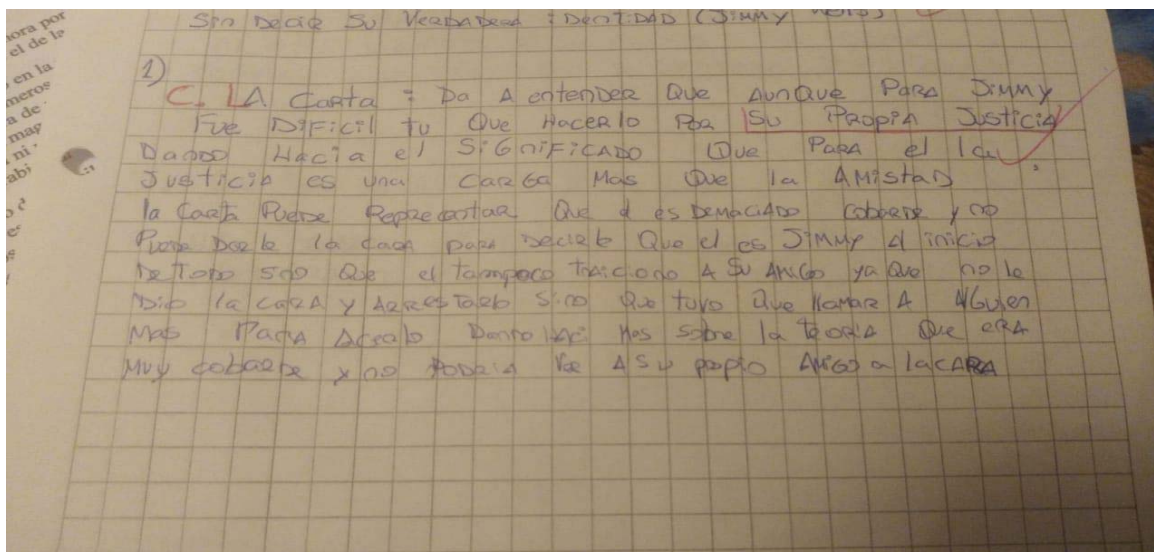 hora por
el de la
en la
meros
a de
may
ni
abi
Sin Decir Su Verdadera identidad (Jimmy
1)
C. LA Carta : Da A entender Que AunQue Para Jimmy
Fue Dificil tu Que Hacerlo Por Su Propia Justicia
Dando Hacia el SiGnificado Que Para el la
Justicia es una CarGa Mas Que la AMistad
la Carta Puede Representar Que el es Demaciado cobarde y no
Puede Darle la cara para Decirle Que el es Jimmy Al inicio
De Todo sno Que el tampoco traiciono A Su AMiGo ya Que no le
Dio la carA y Arrestarlo Sino Que tuvo Que llamar A AlGuien
Mas Para Dando Mas sobre la teoria Que erA
Muy cobarde y no Podria Ver A Su propio AMiGo a la cARA